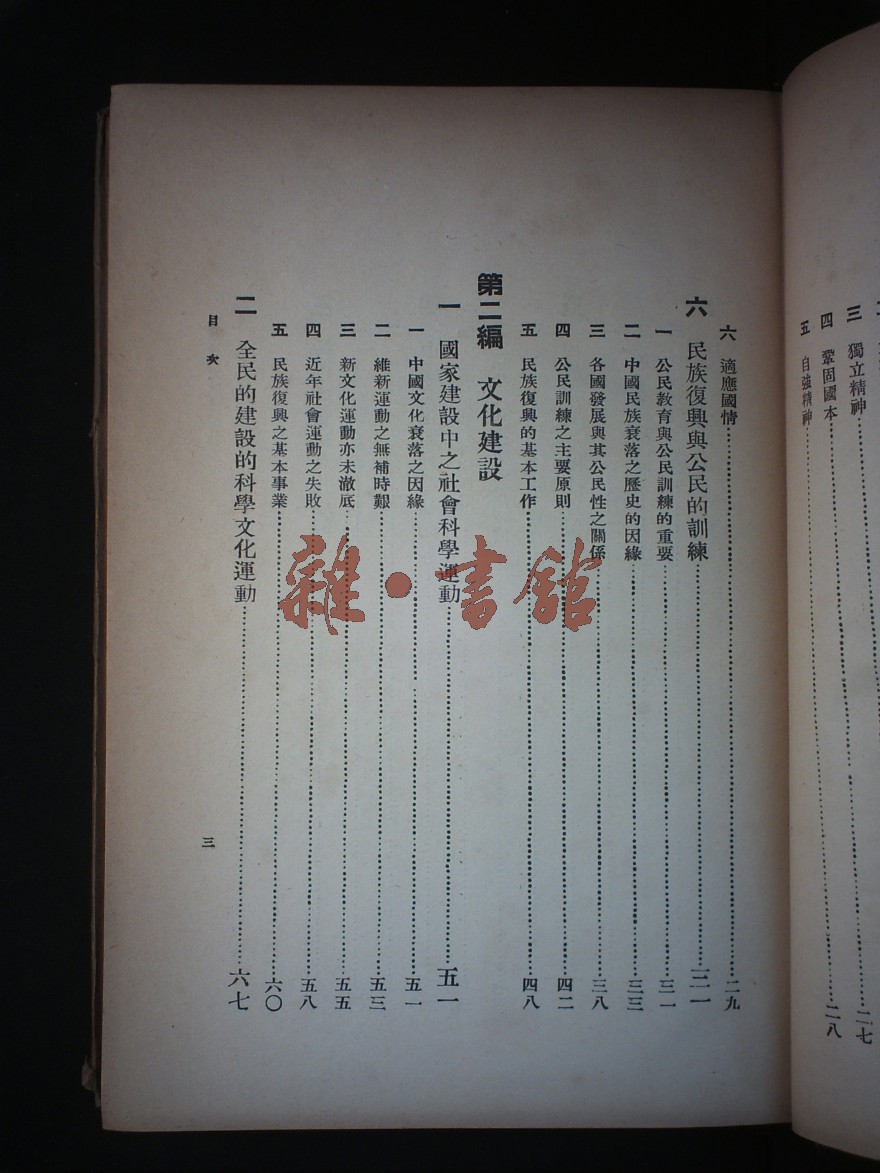 三 獨立精神……二七
四 鞏固國本……二八
五 自強精神
六 適應國情……二九
六 民族復興與公民的訓練……三一
一 公民教育與公民訓練的重要……三一
二 中國民族衰落之歷史的因緣……三三
三 各國發展與其公民性之關係……三八
四 公民訓練之主要原則……四二
五 民族復興的基本工作……四八
第二編 文化建設
一 國家建設中之社會科學運動……五一
一 中國文化衰落之因緣……五一
二 維新運動之無補時艱……五三
三 新文化運動亦未澈底……五五
四 近年社會運動之失敗……五八
五 民族復興之基本事業……六〇
二 全民的建設的科學文化運動……六七
目次
三
雜·書館